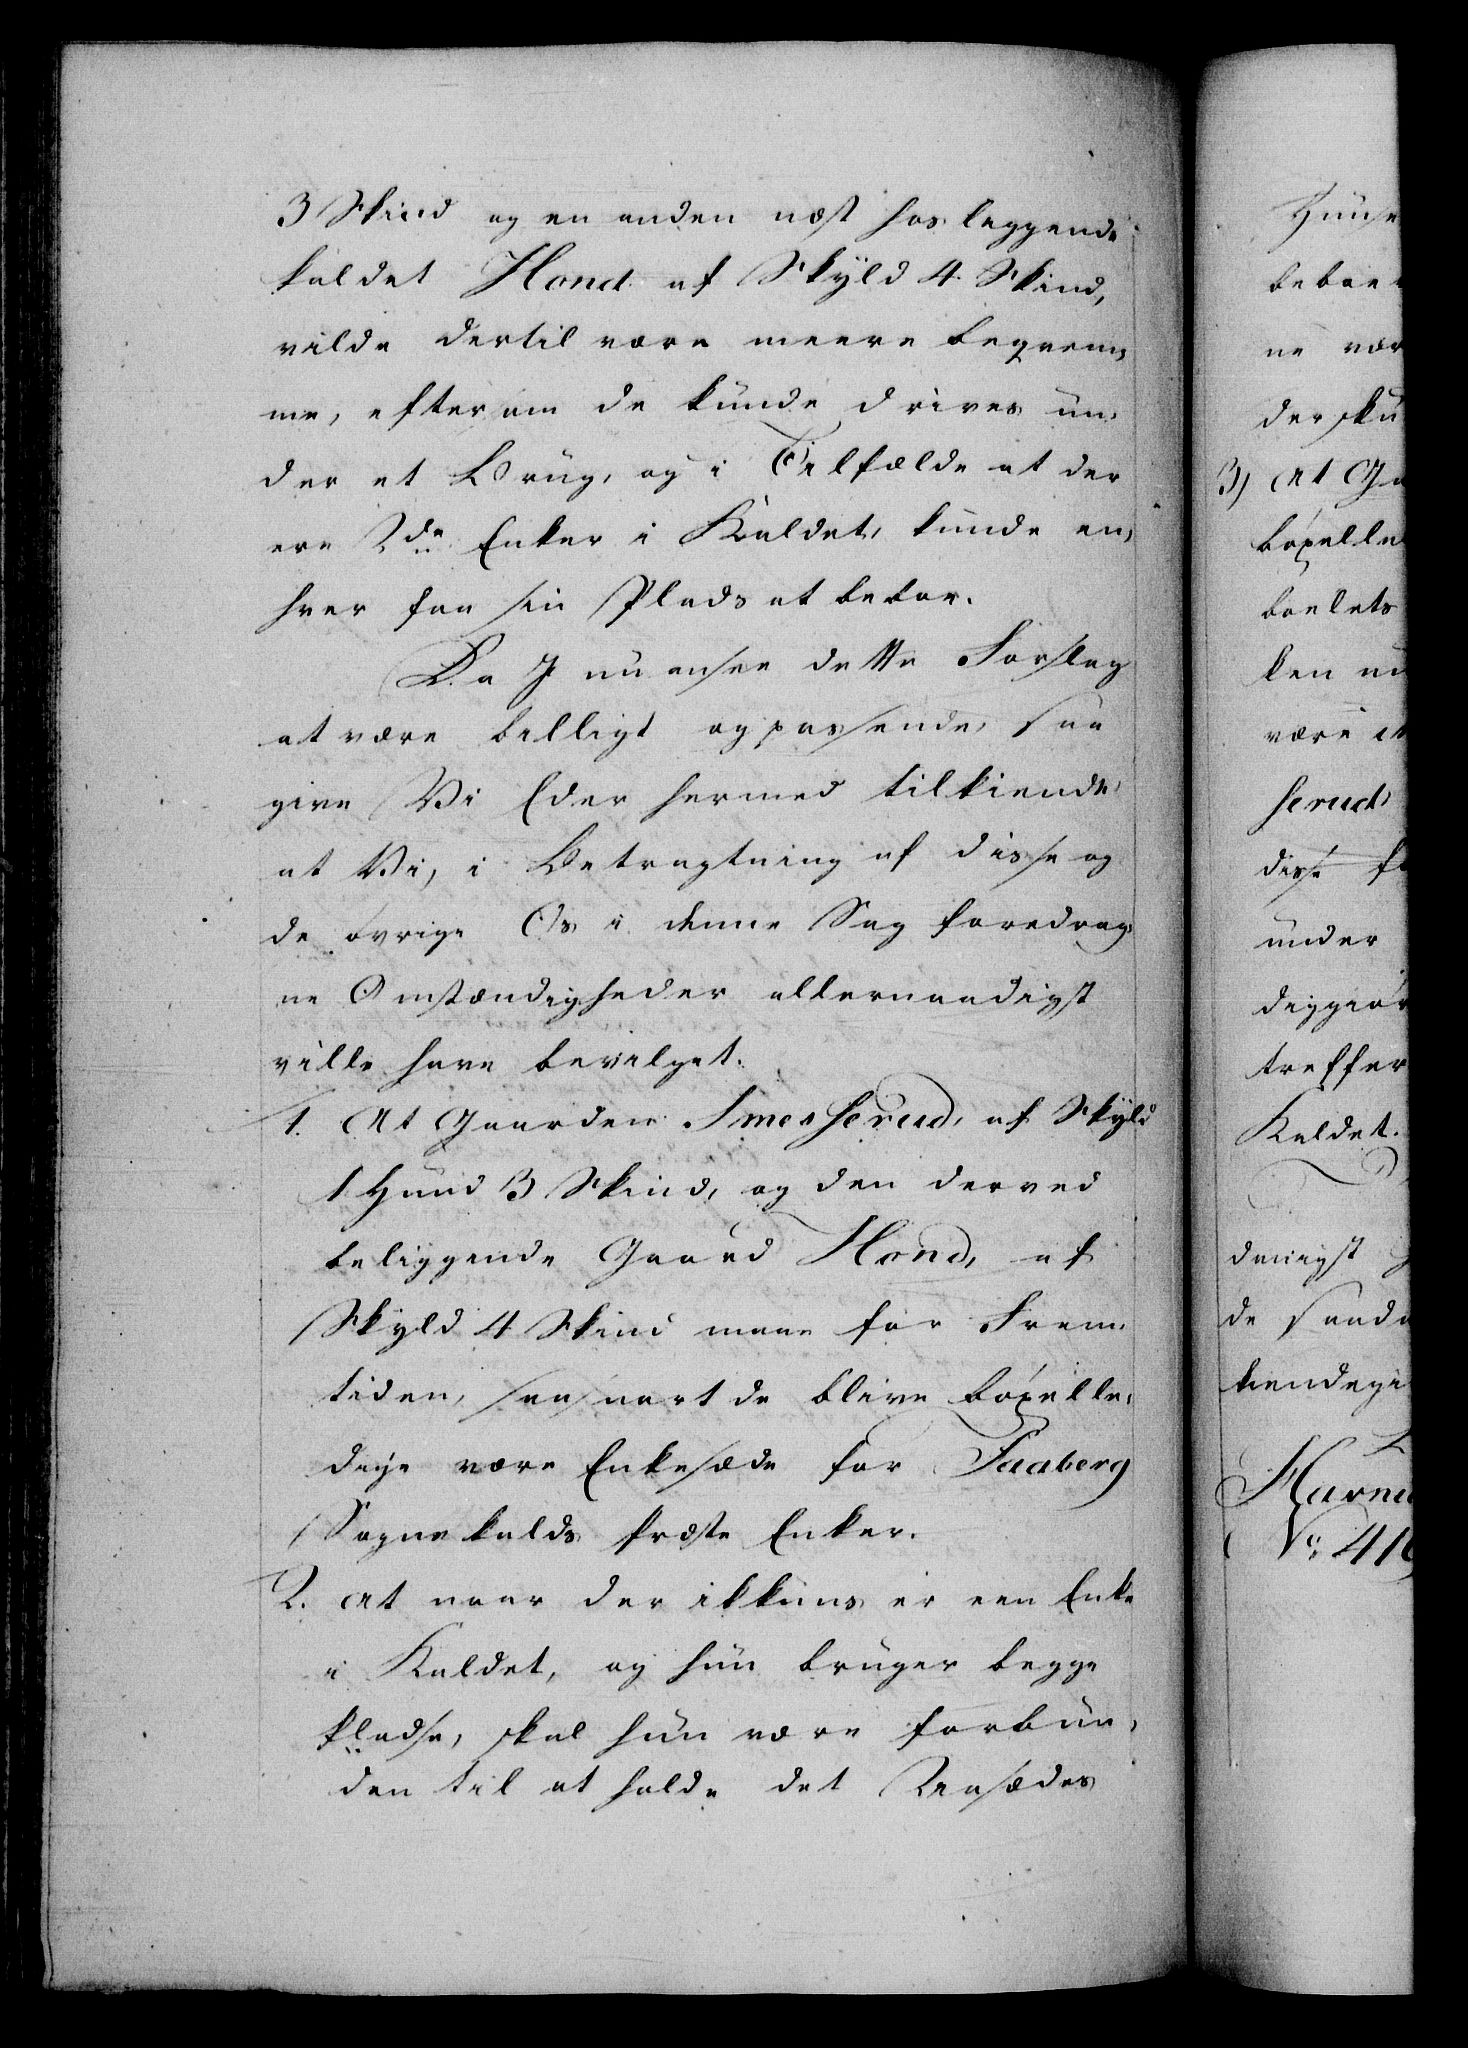 3 Skind og en anden næst hos leggende
kaldet Hond af Skyld 4 Skind,
vilde dertil være meere beqvem,
me, eftersom de kunde drives un,
der et Brug, og i Tilfælde at der
ere 2de Enker i Kaldet, kunde en,
hver faa sin Plads at beboe.
Da I nu ansee dette Forslag
at være billigt og passende, saa
give Vi Eder hermed tilkiende,
at Vi, i Betragtning af disse og
de øvrige Os i denne Sag foredrag,
ne Omstændigheder allernaadigst
ville have bevilget.
1. At Gaarden Smesherud, af Skyld
1 Hund 3 Skind, og den derved
beliggende Gaard Hond, af
Skyld 4 Skind maae for Frem,
tiden, saasnart de blive bøxelle,
dige være Enkesæde for Faaberg
Sognekalds Præste Enker.
2. At naar der ikkuns er een Enke
i Kaldet, og hun bruger begge
Pladse, skal hun være forbun,
den til at holde det
Huuse
beboe
ne vær
der sku
3) At Ga
bøxelle
boelets
ken
være
herud,
disse
under
diggiør
treffer
Kaldet.
de
kiendegi
No. 416